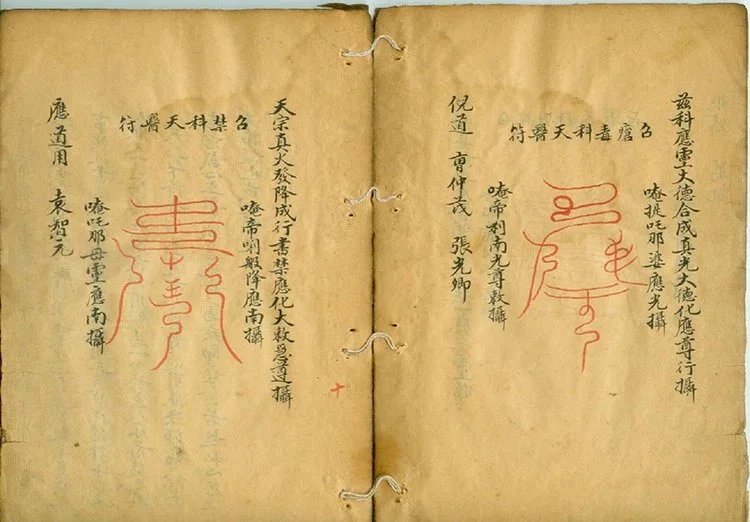 茲科應靈大德合成真光大德化應尊行攝
唵提吒那婆應光攝
召瘡毒科天醫符
唵帝利南光尊敕攝
倪道 曹仲茂 張光卿
天宗真火發降成行書禁應化大敕急遵攝
唵帝唎般降應南攝
召禁科天醫符
唵吒那母靈應南攝
應道用 袁智元
十